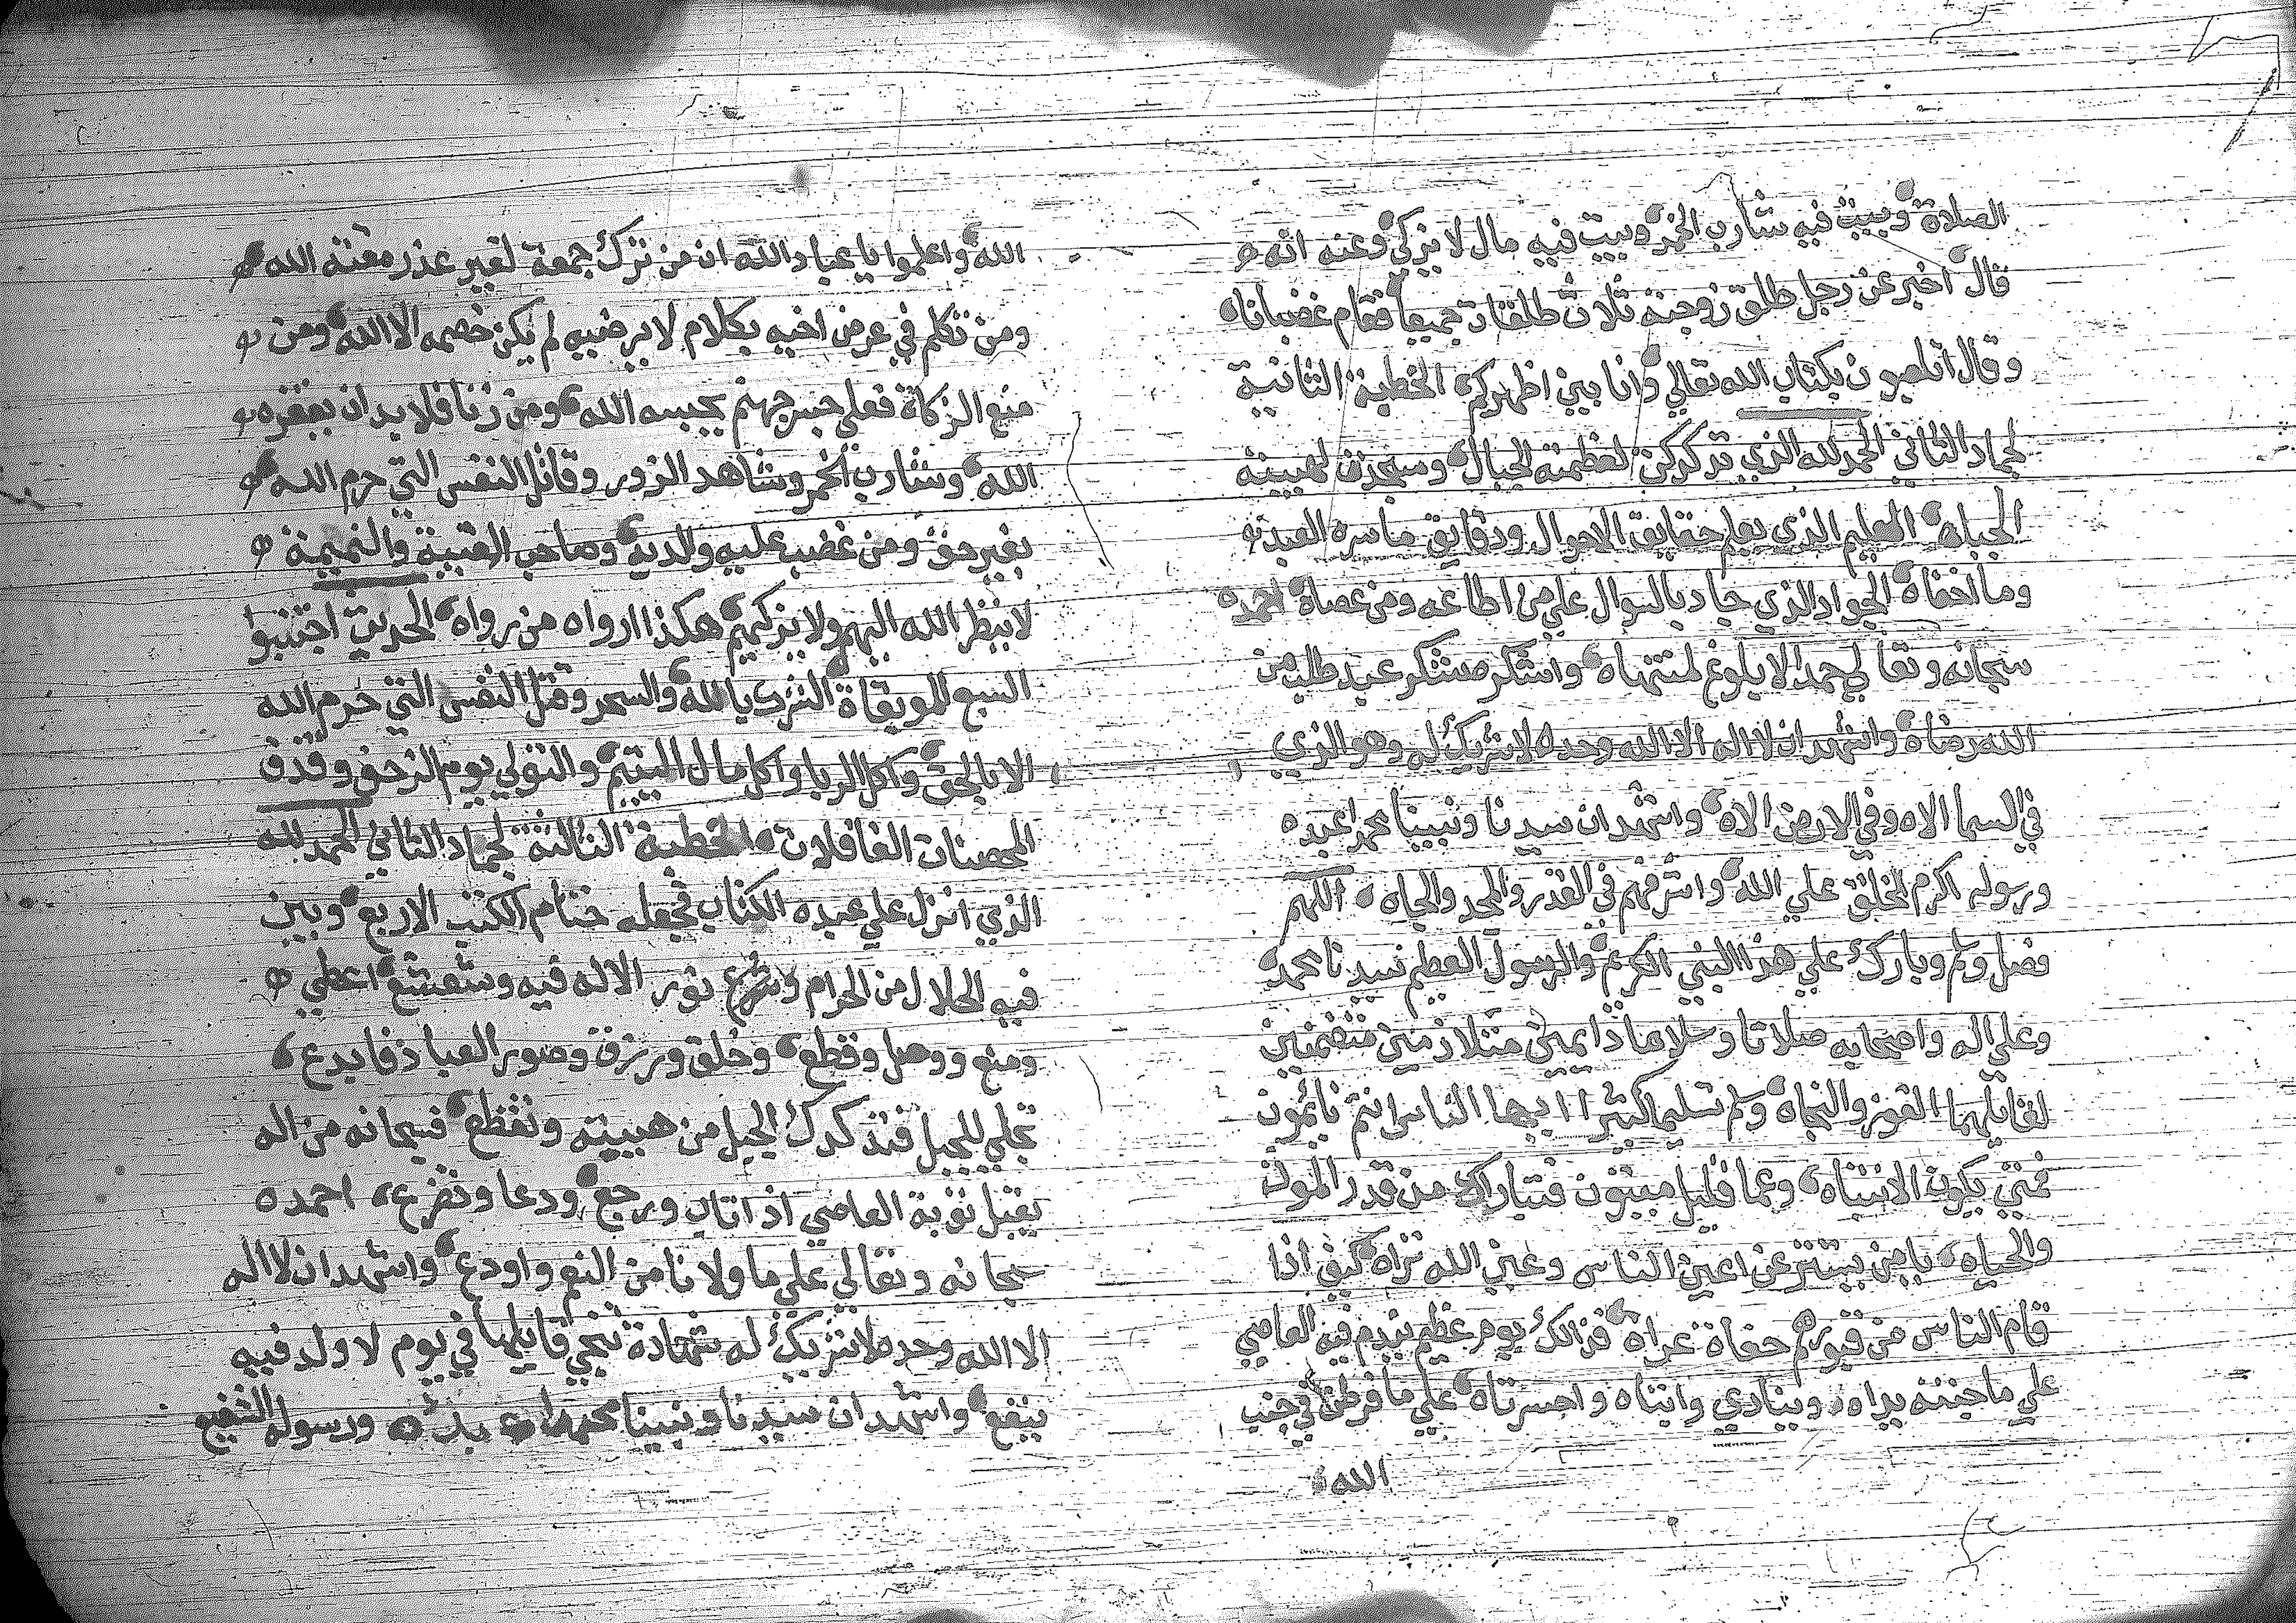 الصلاة وبيت فيه شارب الخمر وبيت فيه مال لا يزكي وعنه انه
قال اخبر عن رجل طلق زوجته ثلاث طلقات جميعا فقام غضبانا
وقال اتلعبون بكتاب الله تعالي وانا بين اظهركم الخطبة الثانية
لجماد الثاني الحمد لله الذي تدكدكن لعظمته الجبال وسجدت لهيبته
الجباه العليم الذي يعلم حقايق الاحوال ودقايق ما سره العبد
وما اخفاه الجواد الذي جاد بالنوال علي من اطاعه ومن عصاه احمده
سبحانه وتعالي حمدا لا يلوغ لمنتهاه واشكره شكر عبد طلب من
الله رضاه واشهد ان لا اله الا الله وحده لا شريك له وهو الذي
في السما الاه وفي الارض الاه واشهد ان سيدنا ونبينا محمدا عبده
ورسوله اكرم الخلق علي الله واشرفهم في القدر والمجد والجاه اللهم
فصل وسلم وبارك علي هذا النبي الكريم والرسول العظيم سيدنا محمد
وعلي اله واصحابه صلاتا وسلاما دايمين متلازمين متضمنين
لقايلهما الفوز والنجاه وسلم تسليما كثيرا ايها الناس انتم نائمون
فمتي يكون الانتباه وعما قليل ميتون فتبارك من قدر الموت
والحياه يا من يستتر عن اعين الناس وعين الله تراه كيف اذا
قام الناس من قبورهم حفاة عراه فذالك يوم عظيم يندم فيه العاصي
علي ما جنته يداه وينادي وابتاه واحسرتاه علي ما فرطت في جنب
الله
الله واعلموا يا عباد الله ان من ترك جمعة لغير عذر مقته الله
ومن تكلم في عرض اخيه بكلام لا يرضيه لم يكن خصمه الا الله ومن
منع الزكاة فعلي جسر جهنم يحبسه الله ومن زنا فلا بد ان يفقره
الله وشارب الخمر وشاهد الزور وقاتل النفس التي حرم الله
بغير حق ومن غضب عليه والديه وصاحب الغيبة والنميمة
لا ينظر الله اليهم ولا يزكيهم هكذا ارواه من رواه الحديث اجتنبوا
السبع الموبقاة الشرك بالله والسحر وقتل النفس التي حرم الله
الا بالحق واكل الربا واكل مال اليتيم والتولي يوم الزحف وقذف
المحصنات الغافلات الخطبة الثالثة لجماد الثاني الحمد لله
الذي انزل علي عبده الكتاب فجعله ختام الكتب الاربع وبين
فيه الحلال من الحرام وشرع نور الاله فيه وشعشع اعطي
ومنع ووصل وقطع وخلق ورزق وصور العباد فابدع
تجلي للجبل فتدكدك الجبل من هيبته وتقطع فسبحانه من اله
يقبل توبة العاصي اذ اتاب ورجع ودعا وتضرع احمده
سبحانه وتعالي علي ما ولانا من النعم واودع واشهد ان لا اله
الا الله وحده لا شريك له شهادة تنجي قايلها في يوم لا ولد فيه
ينفع واشهد ان سيدنا ونبينا محمدا عبده ورسوله الشفيع